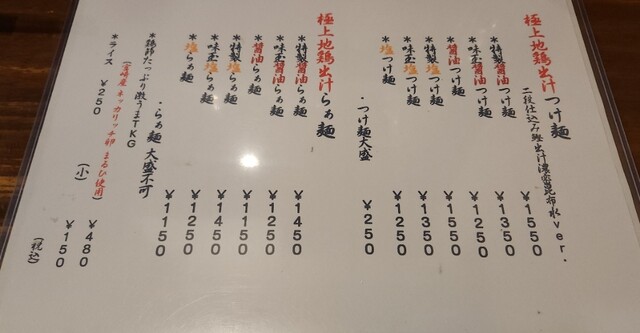 極上地鶏出汁つけ麺
二段仕込み出汁濃密昆布水ver.
*特製醤油つけ麺 ¥1550
*味玉醤油つけ麺 ¥1350
*醤油つけ麺 ¥1250
*特製塩つけ麺 ¥1550
*味玉塩つけ麺 ¥1350
*塩つけ麺 ¥1250
・つけ麺大盛 ¥250
極上地鶏出汁らぁ麺
*特製醤油らぁ麺 ¥1450
*味玉醤油らぁ麺 ¥1250
*醤油らぁ麺 ¥1150
*特製塩らぁ麺 ¥1450
*味玉塩らぁ麺 ¥1250
*塩らぁ麺 ¥1150
・らぁ麺 大盛不可
*鶏節たっぷり激うまTKG
(宮崎産 ネッカリッチ卵 まるひ使用) ¥480
*ライス ¥250 (小) ¥150
(税込)